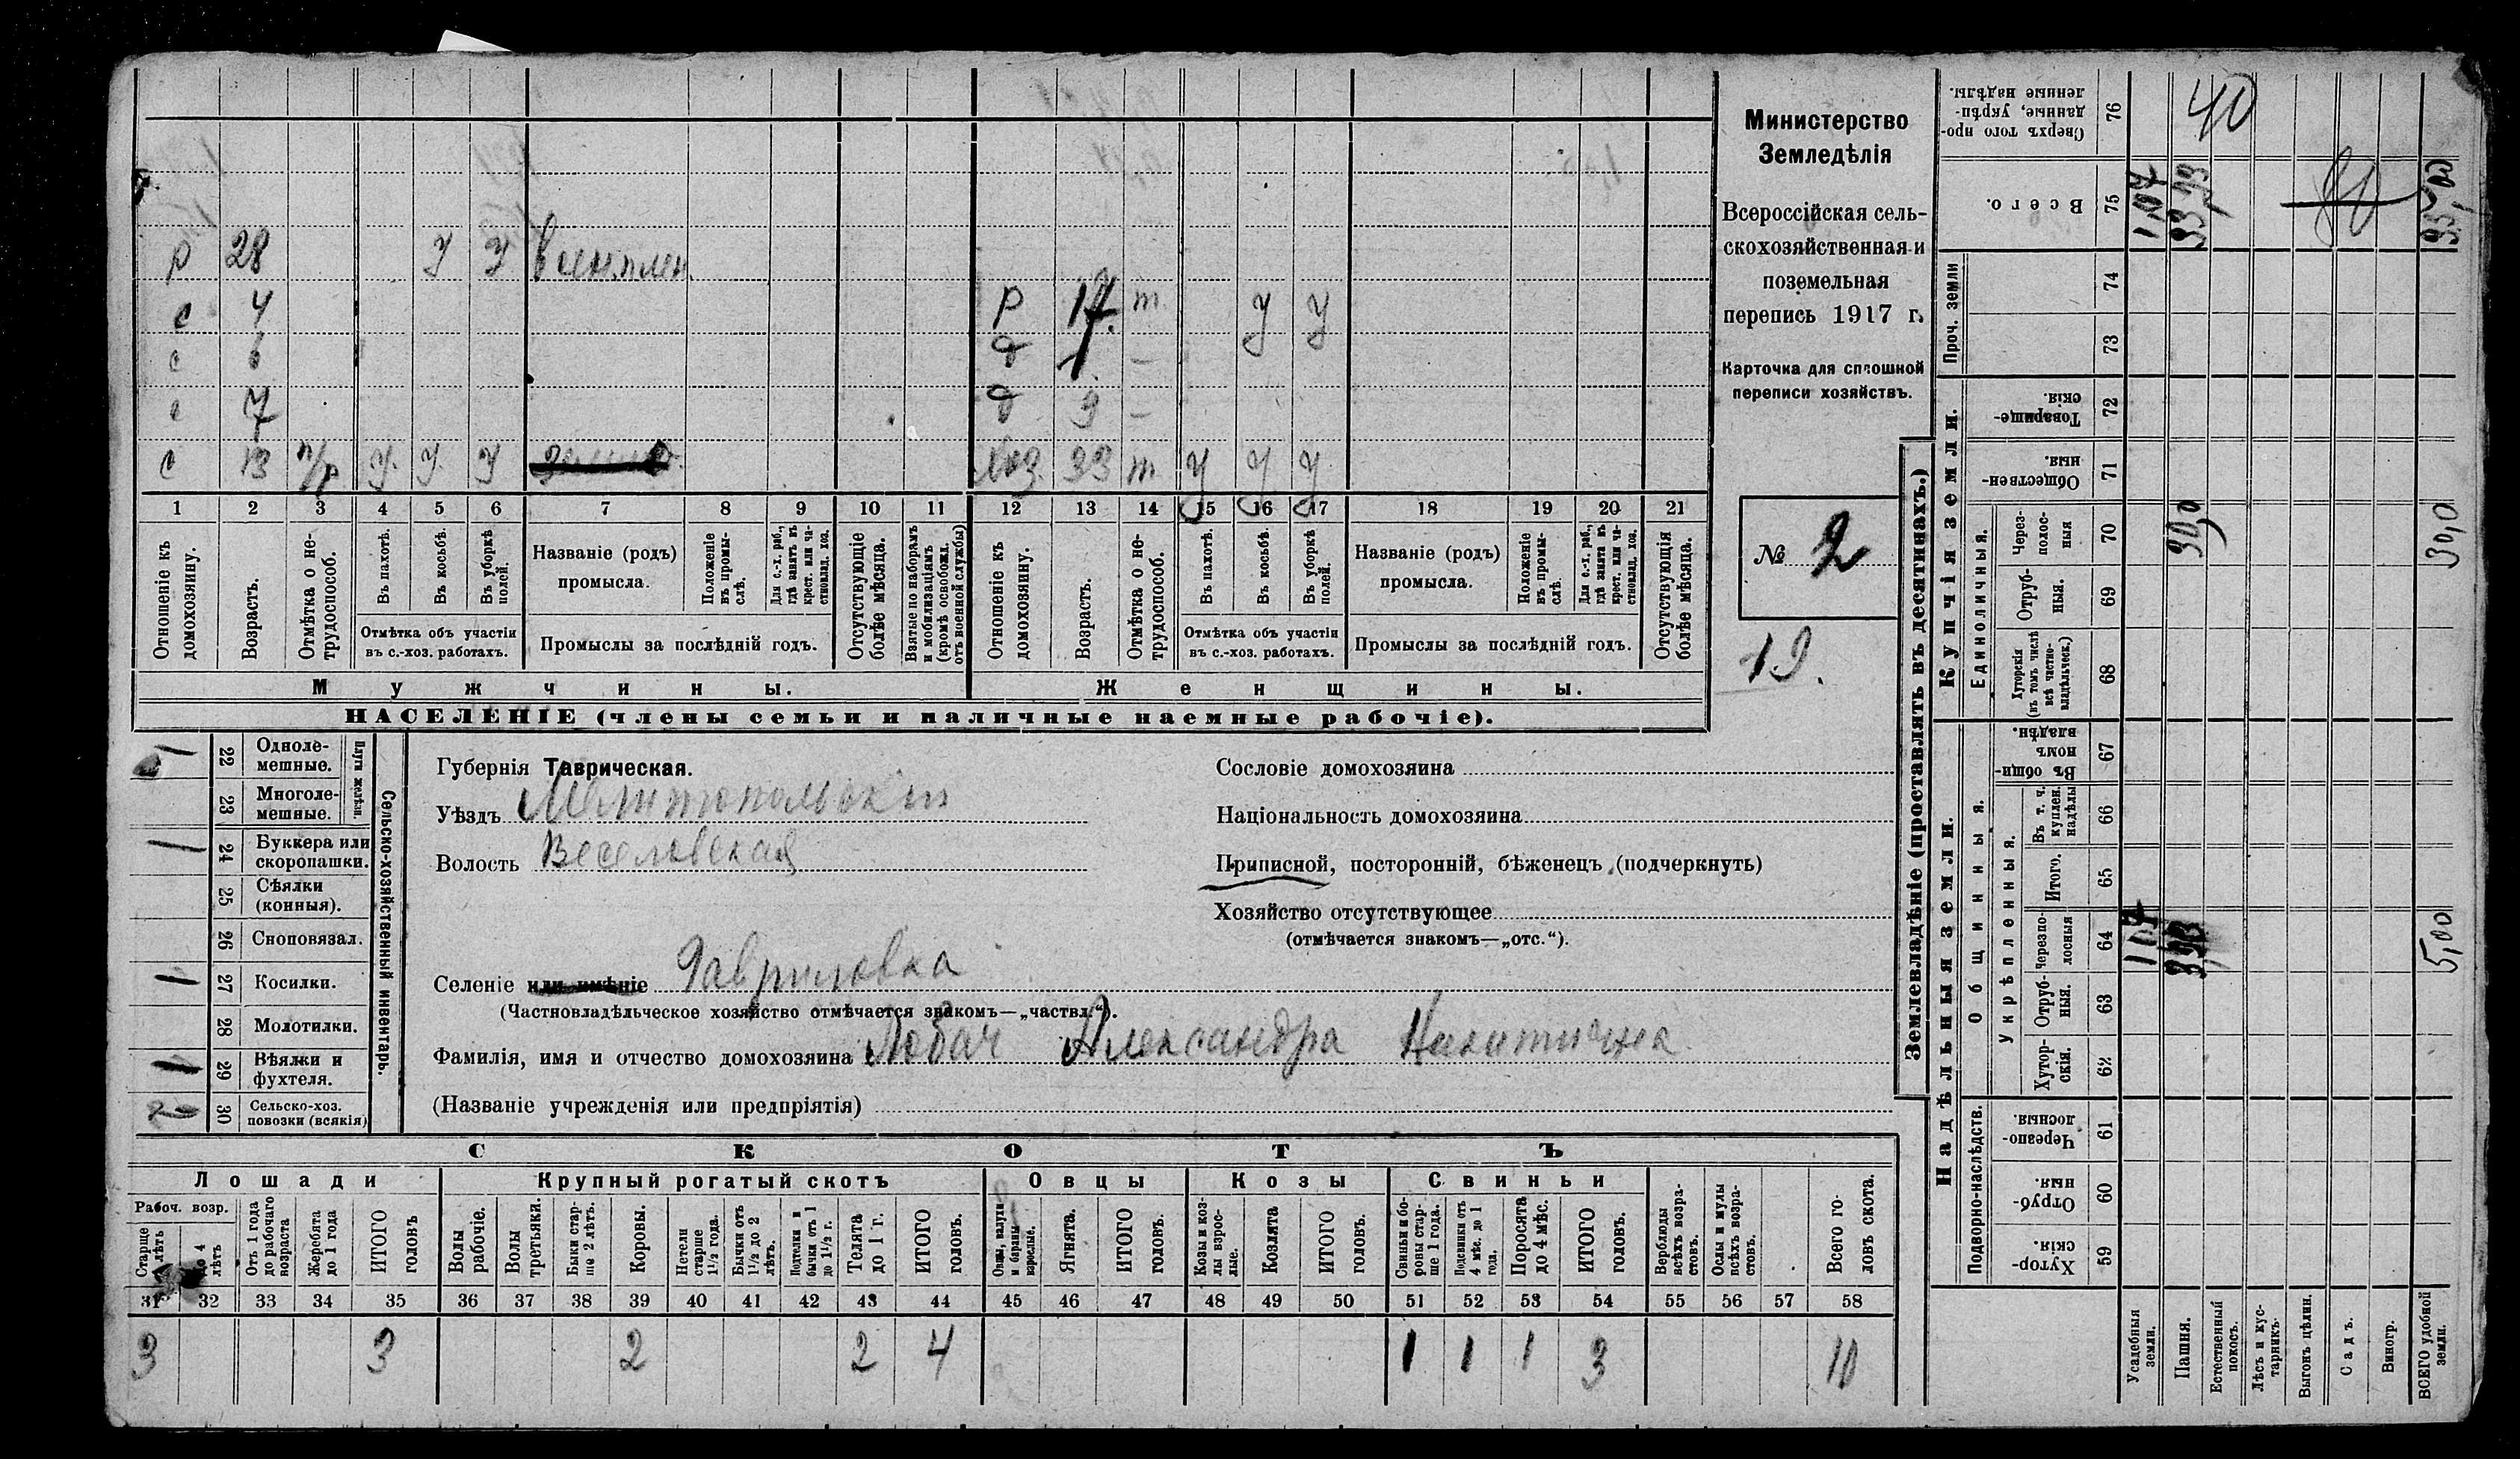 р 28 У У воен. плен.
с 4 р 17 т У У
с 6 д 1 –
с 7 д 9 –
с 13 п/р У. У. У хоз. 33 т У У У
1 2 3 4 5 6 7 8 9 10 11 12 13 14 15 16 17 18 19 20 21
Отношеніе къ домохозяину.
Возрастъ.
Отмѣтка о не-трудоспособ.
Въ пахотѣ.
Въ косьбѣ.
Въ уборкѣ полей.
Отмѣтка объ участіи
въ с.-хоз. работахъ.
Названіе (родъ)
промысла.
Положеніе въ промы-слѣ.
Для с.-х. раб., гдѣ занятъ въ крест. или ча-стновлад. хоз.
Промыслы за послѣдній годъ.
Отсутствующіе болѣе мѣсяца.
Взятые по наборамъ и мобилизаціямъ (кромѣ освобожд. отъ военной службы)
Отношеніе къ домохозяину.
Возрастъ.
Отмѣтка о не-трудоспособ.
Въ пахотѣ.
Въ косьбѣ.
Въ уборкѣ полей.
Отмѣтка объ участіи
въ с.-хоз. работахъ.
Названіе (родъ)
промысла.
Положеніе въ промы-слѣ.
Для с.-х. раб., гдѣ занята въ крест. или ча-стновлад. хоз.
Промыслы за послѣдній годъ.
Отсутствующія болѣе мѣсяца.
Мужчины.
Женщины.
НАСЕЛЕНІЕ (члены семьи и наличные наемные рабочіе).
Министерство
Земледѣлія
Всероссійская сель-
скохозяйственная и
поземельная
перепись 1917 г.
Карточка для сплошной
переписи хозяйствъ.
№ 2
19.
Сельско-хозяйственный инвентарь.
Плуги желѣзн.
1 22 Одноле-мешные.
23 Многоле-мешные.
1 24 Буккера или скоропашки.
25 Сѣялки (конныя).
26 Сноповязал.
1 27 Косилки.
28 Молотилки.
1 29 Вѣялки и фухтеля.
2 30 Сельско-хоз. повозки (всякія)
Губернія Таврическая.
Уѣздъ Мелитопольскій
Волость Веселовская
Селеніе или имѣніе Гавриловка
(Частновладѣльческое хозяйство отмѣчается знакомъ—„частвл.“).
Фамилія, имя и отчество домохозяина Лобач Александра Никитична
(Названіе учрежденія или предпріятія)
Сословіе домохозяина
Національность домохозяина
Приписной, посторонній, бѣженецъ (подчеркнуть)
Хозяйство отсутствующее
(отмѣчается знакомъ—„отс.“).
СКОТЪ
Лошади
Крупный рогатый скотъ
Овцы
Козы
Свиньи
Рабоч. возр.
Старше 4 лѣтъ
до 4 лѣтъ
Отъ 1 года до рабочаго возраста
Жеребята до 1 года
ИТОГО головъ
Волы рабочіе.
Волы третьяки.
Быки стар-ше 2 лѣтъ.
Коровы.
Нетели старше 1½ года.
Бычки отъ 1½ до 2 лѣтъ.
Подтелки и бычки отъ 1 до 1½ г.
Телята до 1 г.
ИТОГО головъ.
Овцы, валухи и бараны взрослые.
Ягнята.
ИТОГО головъ.
Козы и коз-лы взрос-лые.
Козлята
ИТОГО головъ.
Свиньи и бо-ровы стар-ше 1 года.
Подсвинки отъ 4 мѣс. до 1 года.
Поросята до 4 мѣс.
ИТОГО головъ.
Верблюды всѣхъ возра-стовъ.
Ослы и мулы всѣхъ возра-стовъ.
Всего го-ловъ скота.
31 32 33 34 35 36 37 38 39 40 41 42 43 44 45 46 47 48 49 50 51 52 53 54 55 56 57 58
3 3 2 2 4 1 1 1 3 10
Землевладѣніе (проставлять въ десятинахъ.)
Надѣльныя земли.
Купчія земли.
Проч. земли
Подворно-наслѣдств.
Общинныя.
Укрѣпленныя.
Единоличныя.
Сверхъ того про-данные, укрѣп-ленные надѣлы. 76 40
Всего. 75 1,07 33,93 80 35,00
74
73
Товарище-скія. 72
Обществен-ныя. 71
Через-полос-ныя 70 30,0 30,0
Отруб-ныя. 69
Хуторскія (въ томъ числѣ всѣ частно-владѣльческ.) 68
Въ общи-номъ владѣн. 67
Въ т. ч. куплен. надѣлы 66
Итого. 65
Черезпо-лосныя 64 1,07 3,93 5,00
Отруб-ныя. 63
Хутор-скія. 62
Черезпо-лосныя 61
Отруб-ныя. 60
Хутор-скія. 59
Усадебныя земли.
Пашня.
Естественный покосъ.
Лѣсъ и кус-тарникъ.
Выгонъ цѣлин.
Садъ.
Виногр.
ВСЕГО удобной земли.